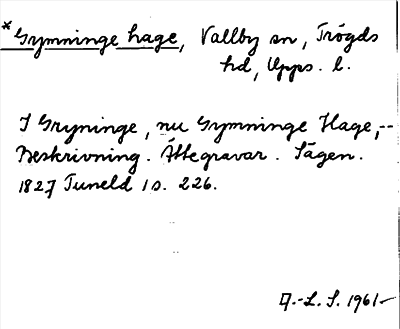 *Gymninge hage, Vallby sn, Trögds
hd, Upps. l.
I Gryninge, nu Gymninge Hage,--
Beskrivning. Ättegravar. Sägen.
1827 Tuneld 1 s. 226.
A.-L. S. 1961